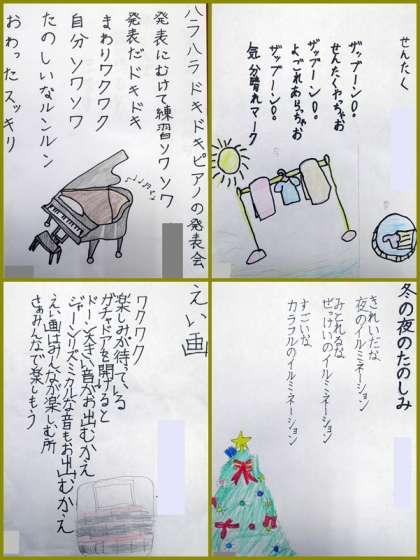 ハラハラドキドキピアノの発表会
発表にむけて練習ソワソワ
発表だドキドキ
まわりワクワク
自分ソワソワ
たのしいなルンルン
おわったスッキリ
せんたく
ザップーン。
せんたくやっちゃお
ザップーン。
よごれあらっちゃお
ザップーン。
気分晴れマーク
えい画
ワクワク
楽しみが待っている
ガチャドアを開けると
ドーン大きい音がお出むかえ
ジャーンリズミカルな音もお出むかえ
えい画はみんなが楽しむ所
さぁみんなで楽しもう
冬の夜のたのしみ
きれいだな
夜のイルミネーション
みとれるな
ぜっけいのイルミネーション
すごいな
カラフルのイルミネーション